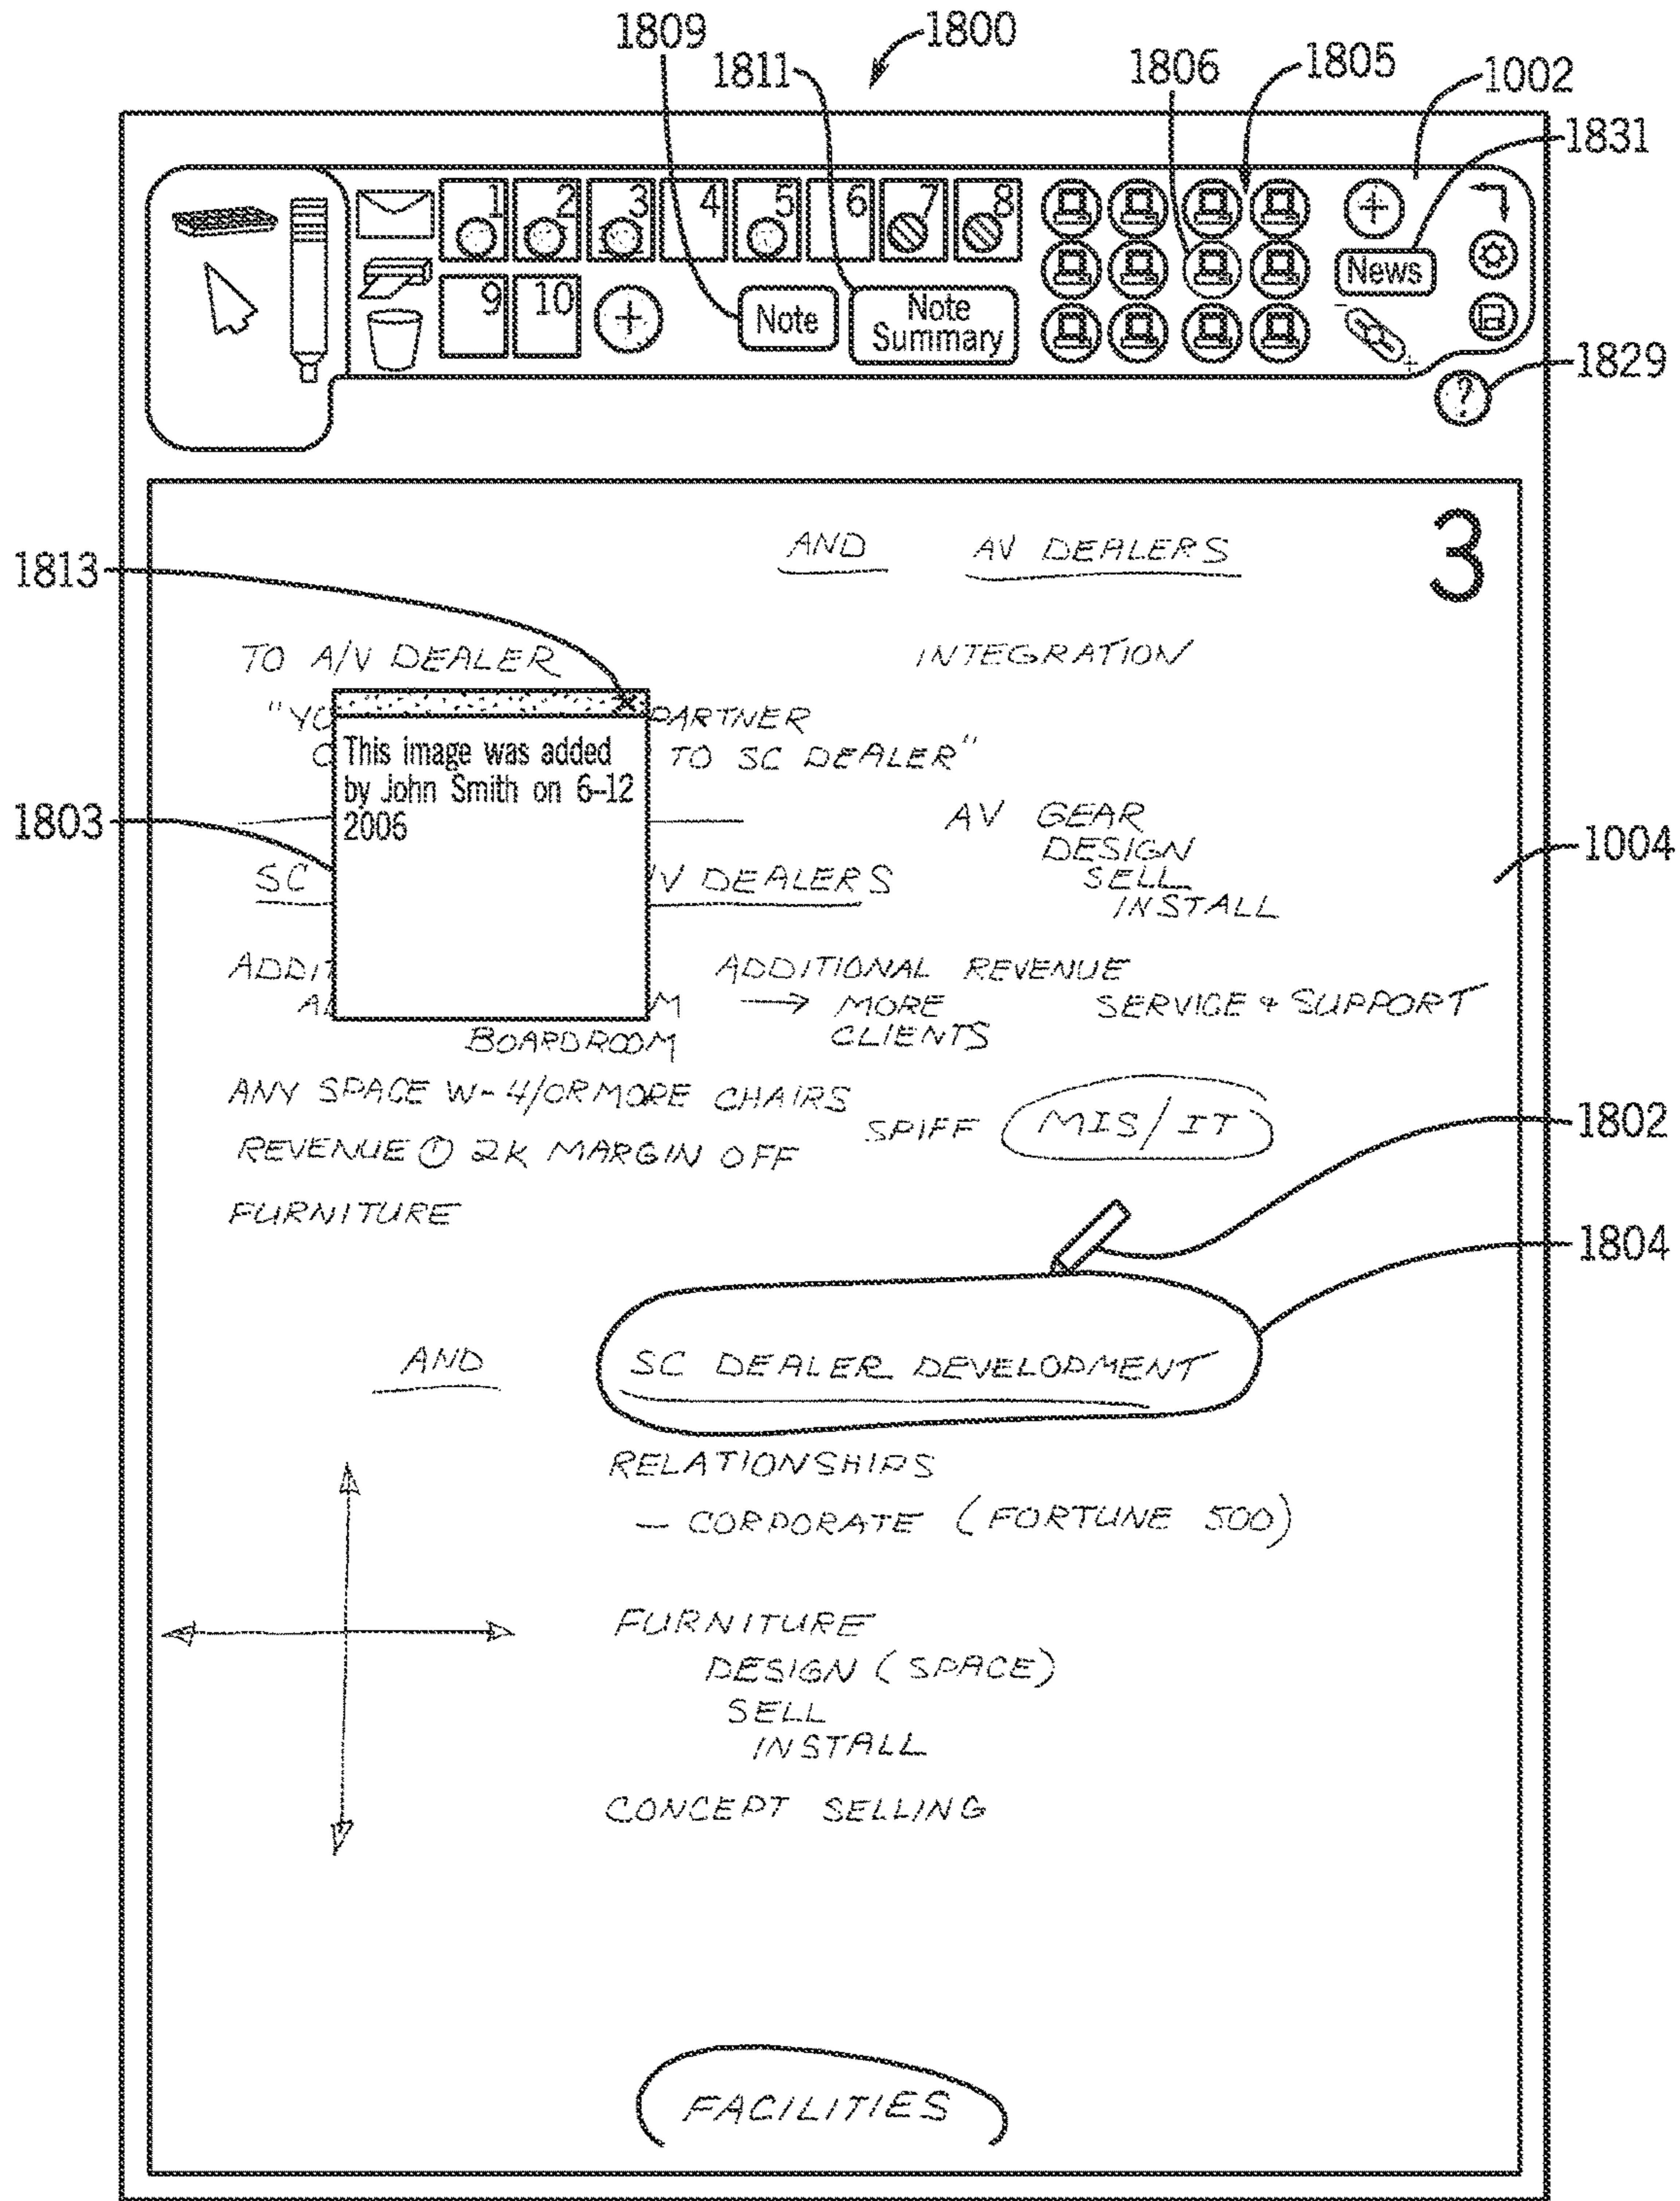 1809
1800
1811
1806
1805
1002
1831
1 2 3 4 5 6 7 8
9 10
Note
Note
Summary
News
?
1829
3
AND AV DEALERS
1813
TO A/V DEALER INTEGRATION
"YO PARTNER
C TO SC DEALER"
This image was added
by John Smith on 6-12
2006
1803
AV GEAR
DESIGN
SELL
INSTALL
1004
SC V DEALERS
ADDIT ADDITIONAL REVENUE
A M → MORE SERVICE & SUPPORT
CLIENTS
BOARDROOM
ANY SPACE W-4/OR MORE CHAIRS
SPIFF MIS/IT
1802
REVENUE ① 2K MARGIN OFF
FURNITURE
1804
AND SC DEALER DEVELOPMENT
RELATIONSHIPS
— CORPORATE (FORTUNE 500)
FURNITURE
DESIGN (SPACE)
SELL
INSTALL
CONCEPT SELLING
FACILITIES